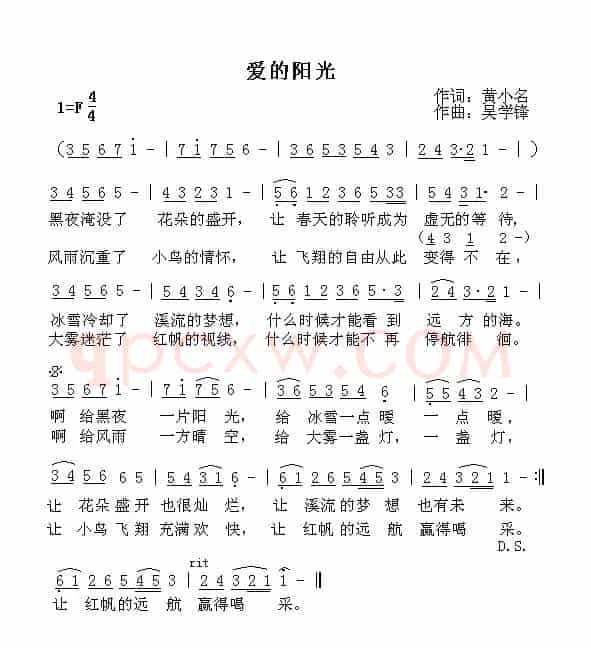 爱的阳光
1=F 4/4
作词：黄小名
作曲：吴学锋
( 3 5 6 7 i - | 7 i 7 5 6 - | 3 6 5 3 5 4 3 | 2 4 3·2 1 - | )
3 4 5 6 5 - | 4 3 2 3 1 - | 5 6 1 2 3 6 5 3 3 | 5 4 3 1· 2 - |
黑夜淹没了 花朵的盛开， 让 春天的聆听成为 虚无的等 待，
(4 3 1 2 -)
风雨沉重了 小鸟的情怀， 让 飞翔的自由从此 变得 不 在，
3 4 5 6 5 - | 5 4 3 4 6 - | 5 6 1 2 3 6 5·3 | 2 4 3·2 1 - |
冰雪冷却了 溪流的梦想， 什么时候才能看 到 远 方 的海。
大雾迷茫了 红帆的视线， 什么时候才能不 再 停航徘 徊。
3 5 6 7 i - | 7 i 7 5 6 - | 3 6 5 3 5 4 6 | 5 4 5 4 3 2 - |
啊 给黑夜 一片阳 光， 给 冰雪一点 暖 一 点 暖，
啊 给风雨 一方晴 空， 给 大雾一盏 灯， 一 盏 灯，
3 4 5 6 5 - | 5 4 3 1 6 - | 6 1 2 6 5 4 5 3 | 2 4 3 2 1 2 - :‖
让 花朵 盛开 也很灿 烂， 让 溪流的梦 想 也有未 来。
让 小鸟 飞翔 充满欢 快， 让 红帆的远 航 赢得喝 采。
D.S.
rit
6 1 2 6 5 4 5 3 | 2 4 3 2 1 i - ‖
让 红帆的远 航 赢得喝 采。
qpcxw.COM